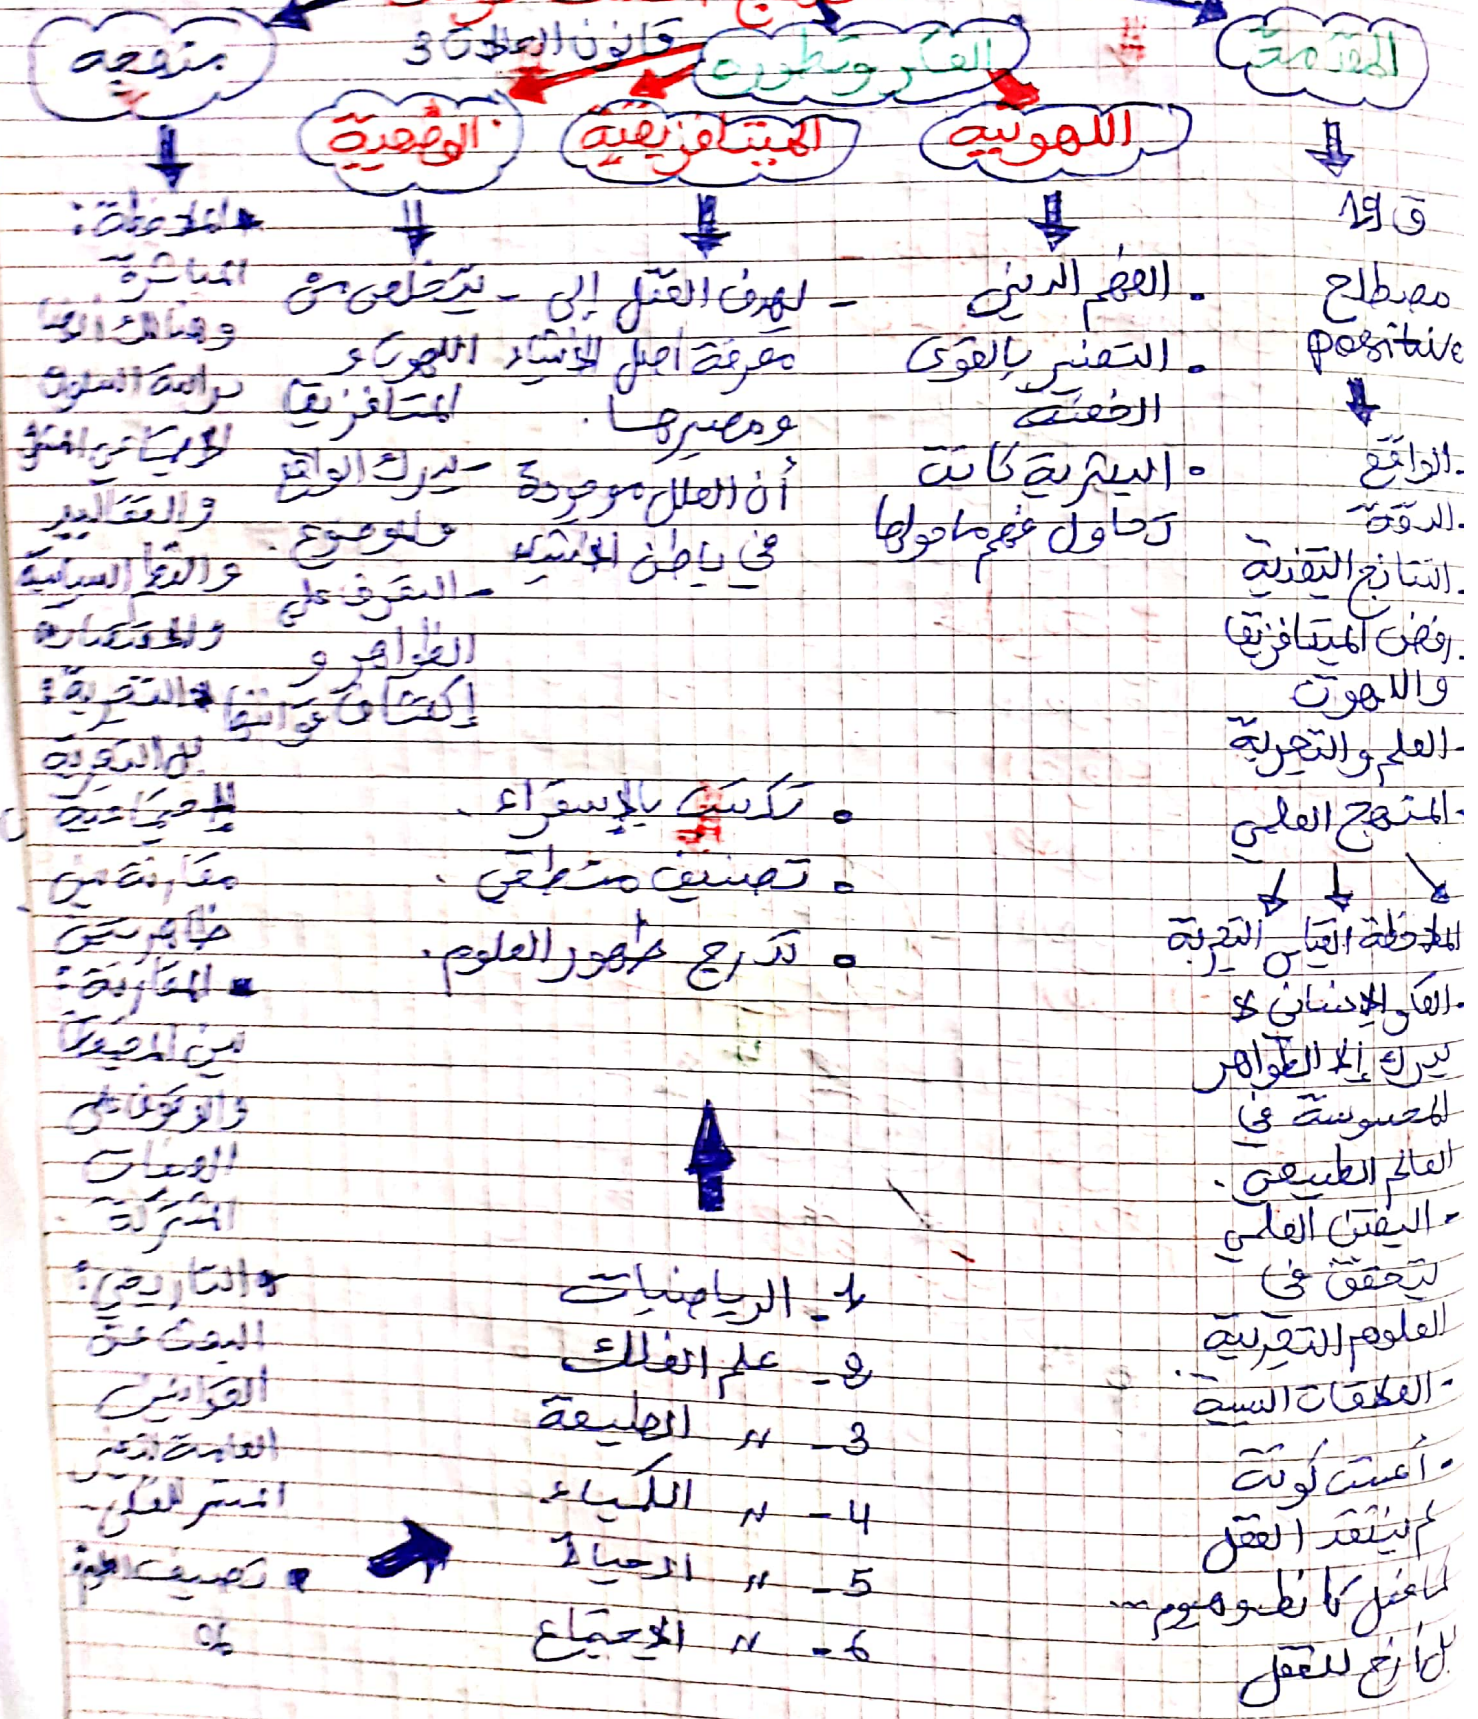 المقدمة
ق 19
مصطلح
positive
. الواقع
. الدقة
. النتائج النقدية
. رفض الميتافزيقا
واللاهوت
- العلم والتجربة
. المنهج العلمي
الملاحظة القياس التجربة
. الفكر الإنساني لا
يدرك إلا الظواهر
المحسوسة في
العالم الطبيعي .
. اليقين العلمي
يتحقق في
العلوم التجريبية .
- العلاقات السببية
. أغست كونت
لم ينتقد العقل
كما فعل كانط وهيوم ...
بل أرخ للعقل
الفكر وتطوره
قانون الحالات 3
اللهوتية
. الفهم الديني
. التفسير بالقوى
الخفية
. البشرية كانت
تحاول فهم ماحولها
الميتافزيقية
- يهدف العقل إلى
معرفة أصل الأشياء
ومصيرها .
أن العلل موجودة
في باطن الأشياء
الوضعية
- يتخلص من
اللهوت و
المتافزيقا
- يدرك الواقع
والموضوع .
- التعرف على
الظواهر و
إكتشاف قوانينها
. تكتسب بالإستقراء .
. تصنيف منطقي .
. تدرج ظهور العلوم .
1 - الرياضيات
2 - علم الفلك
3 - " الطبيعة
4 - " الكمياء
5 - " الحياة
6 - " الإجتماع
منهجه
. الملاحظة :
المباشرة
وهنالك أيضا
دراسة السلوك
والتقاليد
والنظم السياسية
والاقتصادية
. التجربة :
بل التجربة
الإجتماعية
مقارنة بين
ظاهرتين
. المقارنة :
بين المجتمعات
والوقوف على
الصفات
المشتركة
. التاريخي :
البحث عن
القوانين
العامة
. تصنيف العلوم :